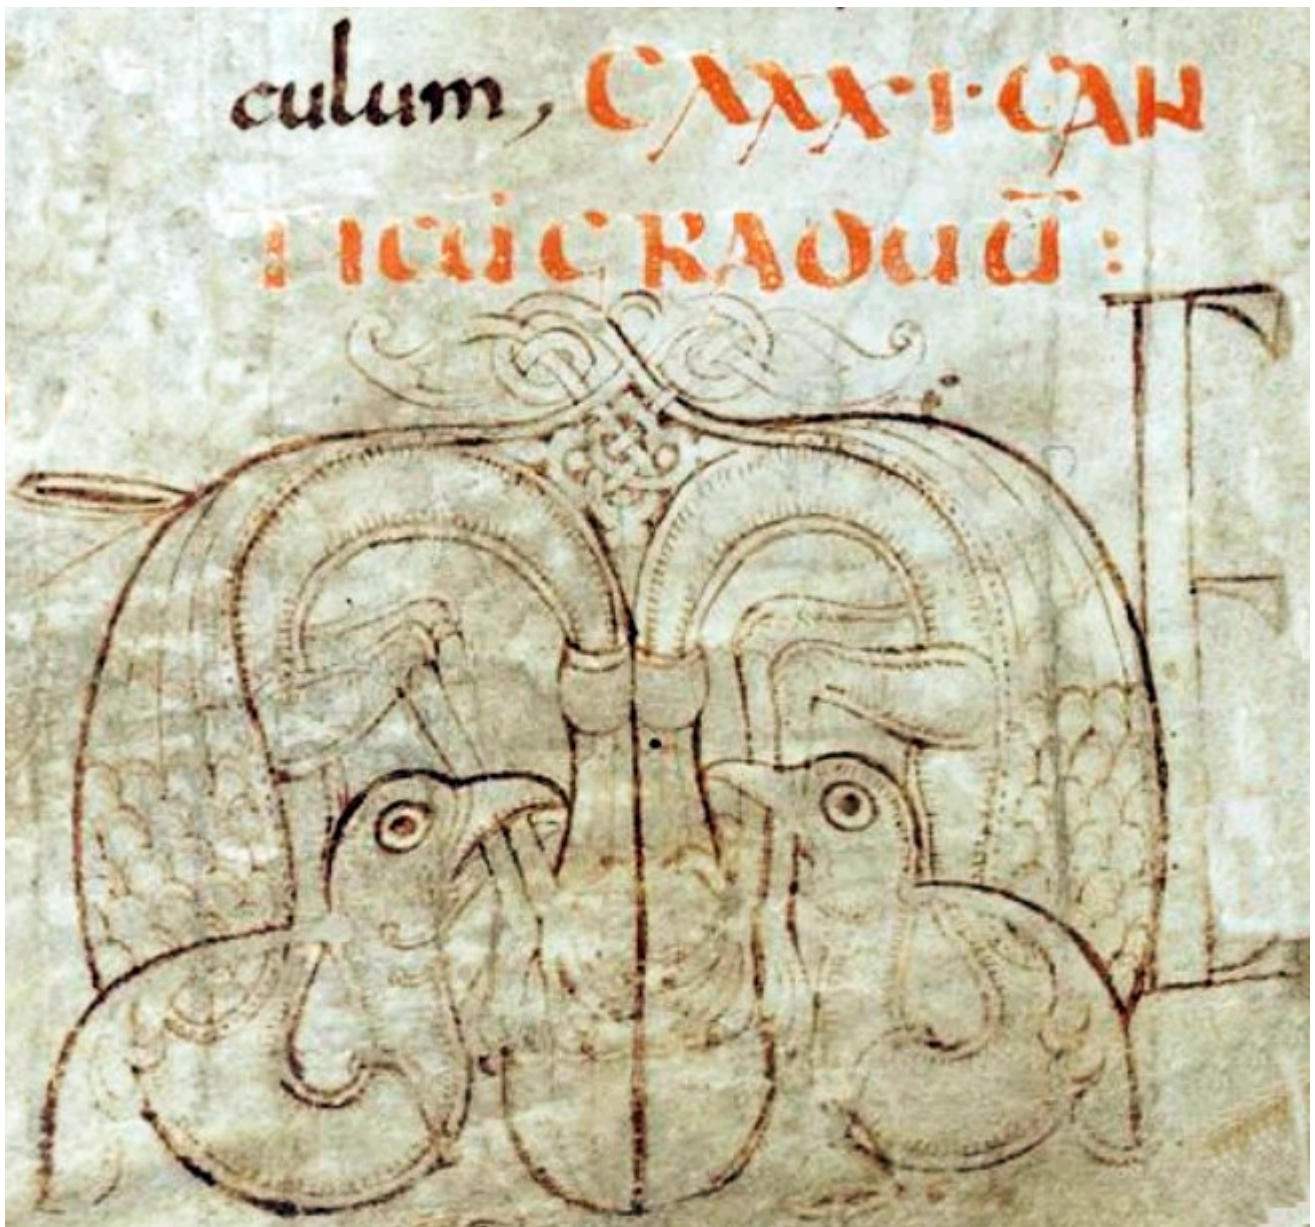 culum, CXXX·I·CAN
TICŪ GRADUŪ :
ME